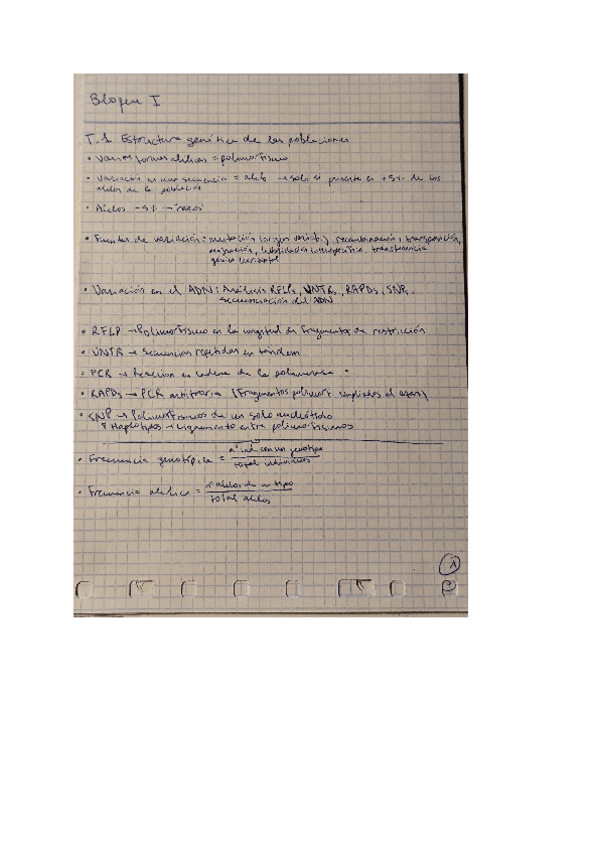 Bloque I
T.1 Estructura genética de las poblaciones
• Varias formas alélicas = polimorfismo
• Variación en una secuencia = alelo → solo si presente en +5% de los
alelos de la población
• Alelos -5% →
• Fuentes de variación: mutación (origen variab.), recombinación, transposición,
migración, hibridación interespecífica, transferencia
génica horizontal
• Variación en el ADN: Análisis RFLPs, VNTRs, RAPDs, SNPs,
secuenciación del ADN
• RFLP → Polimorfismo en la longitud de fragmentos de restricción
• VNTR → Secuencias repetidas en tándem
• PCR → Reacción en cadena de la polimerasa
• RAPDs → PCR arbitraria (Fragmentos polimorf. ampliados al azar)
• SNP → Polimorfismos de un solo nucleótido
Haplotipos → Ligamiento entre polimorfismos
• Frecuencia genotípica = nº ind. con un genotipo
total individuos
• Frecuencia alélica = nº alelos de un tipo
total alelos
1